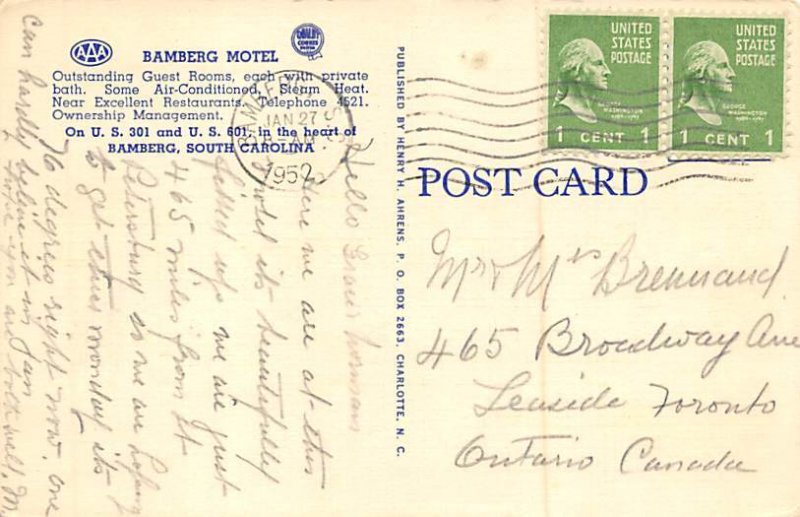 AAA
QUALITY
COURTS
BAMBERG MOTEL
Outstanding Guest Rooms, each with private
bath. Some Air-Conditioned, Steam Heat.
Near Excellent Restaurants. Telephone 4521.
Ownership Management.
On U. S. 301 and U. S. 601, in the heart of
BAMBERG, SOUTH CAROLINA
BAMBERG S.C.
JAN 27
1952
Hello Grace Norman
Here we are at this
motel its beautifully
fixed up we are just
465 miles from St
Petersburg so we are hoping
to get there monday its
76 degrees right now. one
can hardly believe it in Jan
hope you are both well. M.
PUBLISHED BY HENRY H. AHRENS, P. O. BOX 2663, CHARLOTTE, N. C.
UNITED
STATES
POSTAGE
GEORGE
WASHINGTON
1 CENT 1
UNITED
STATES
POSTAGE
GEORGE
WASHINGTON
1 CENT 1
POST CARD
Mr & Mrs Brennand
465 Broadway Ave
Leaside Toronto
Ontario Canada